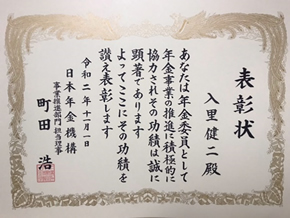 表彰状
入里健二殿
あなたは年金委員として
年金事業の推進に積極的に
協力されその功績は誠に
顕著であります
よってここにその功績を
讃え表彰します
令和二年十一月一日
日本年金機構
事業推進部門担当理事
町田浩